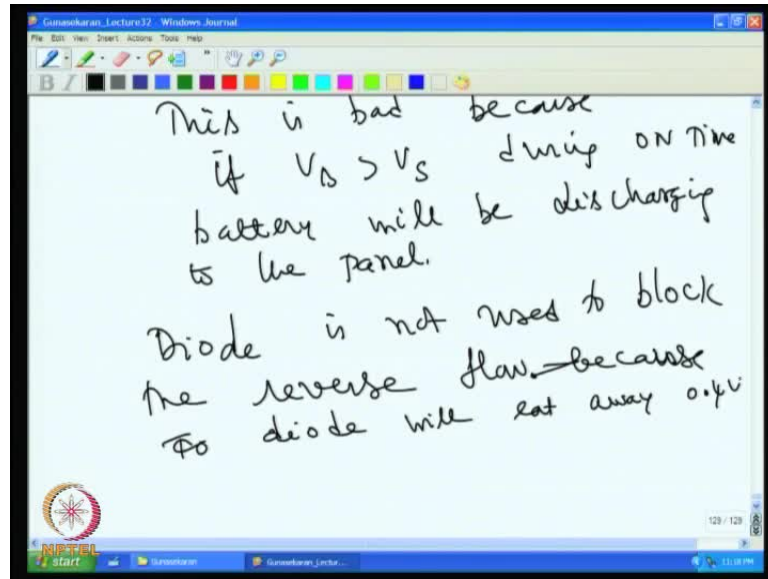 Gunasekaran_Lecture32 - Windows Journal
File Edit View Insert Actions Tools Help
B I
This is bad because
if VB > VS during ON Time
battery will be discharging
to the panel.
Diode is not used to block
the reverse flow. because
diode will eat away 0.4V
129 / 129
NPTEL
start Gunasekaran Gunasekaran_Lectur... 11:18 PM